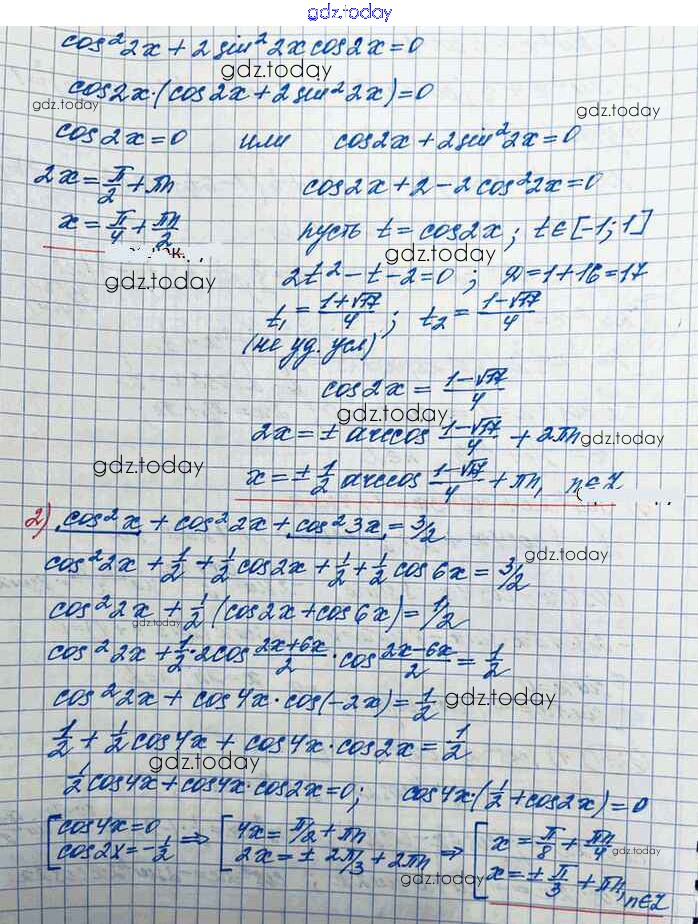 gdz.today
cos²2x + 2 sin²2x cos2x = 0
gdz.today
cos2x·(cos2x + 2 sin²2x) = 0
gdz.today
cos2x = 0 или cos2x + 2 sin²2x = 0
gdz.today
2x = π/2 + πn
cos2x + 2 - 2 cos²2x = 0
x = π/4 + πn/2
пусть t = cos2x ; t ∈ [-1; 1]
gdz.today
gdz.today
2t² - t - 2 = 0 ; D = 1 + 16 = 17
t₁ = (1+√17)/4 ; t₂ = (1-√17)/4
(не уд. усл)
cos2x = (1-√17)/4
gdz.today
2x = ± arccos (1-√17)/4 + 2πn
gdz.today
gdz.today
x = ± 1/2 arccos (1-√17)/4 + πn, n ∈ Z
2) cos²x + cos²2x + cos²3x = 3/2
gdz.today
cos²2x + 1/2 + 1/2 cos2x + 1/2 + 1/2 cos6x = 3/2
cos²2x + 1/2 (cos2x + cos6x) = 1/2
gdz.today
cos²2x + 1/2·2cos (2x+6x)/2 · cos (2x-6x)/2 = 1/2
cos²2x + cos4x·cos(-2x) = 1/2
gdz.today
1/2 + 1/2 cos4x + cos4x·cos2x = 1/2
1/2 cos4x + cos4x·cos2x = 0; cos4x·(1/2 + cos2x) = 0
[cos4x = 0 ⇒ [4x = π/2 + πn ⇒ [x = π/8 + πn/4
cos2x = -1/2 2x = ± 2π/3 + 2πn x = ± π/3 + πn, n∈Z
gdz.today
gdz.today